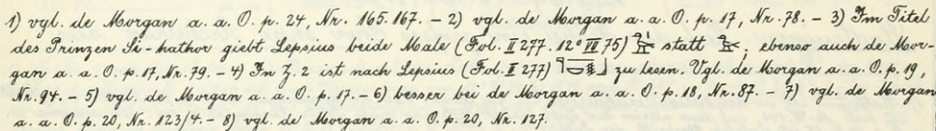 1) vgl. de Morgan a. a. O. p. 24, Nr. 165. 167. – 2) vgl. de Morgan a. a. O. p. 17, Nr. 78. – 3) Im Titel
des Prinzen Si-hathor giebt Lepsius beide Male (Fol. II 277. 12° III 75) statt ; ebenso auch de Mor-
gan a. a. O. p. 17, Nr. 79. – 4) In Z. 2 ist nach Lepsius (Fol. II 277) zu lesen. Vgl. de Morgan a. a. O. p. 19,
Nr. 94. – 5) vgl. de Morgan a. a. O. p. 17. – 6) besser bei de Morgan a. a. O. p. 18, Nr. 87. – 7) vgl. de Morgan
a. a. O. p. 20, Nr. 123/4. – 8) vgl. de Morgan a. a. O. p. 20, Nr. 127.